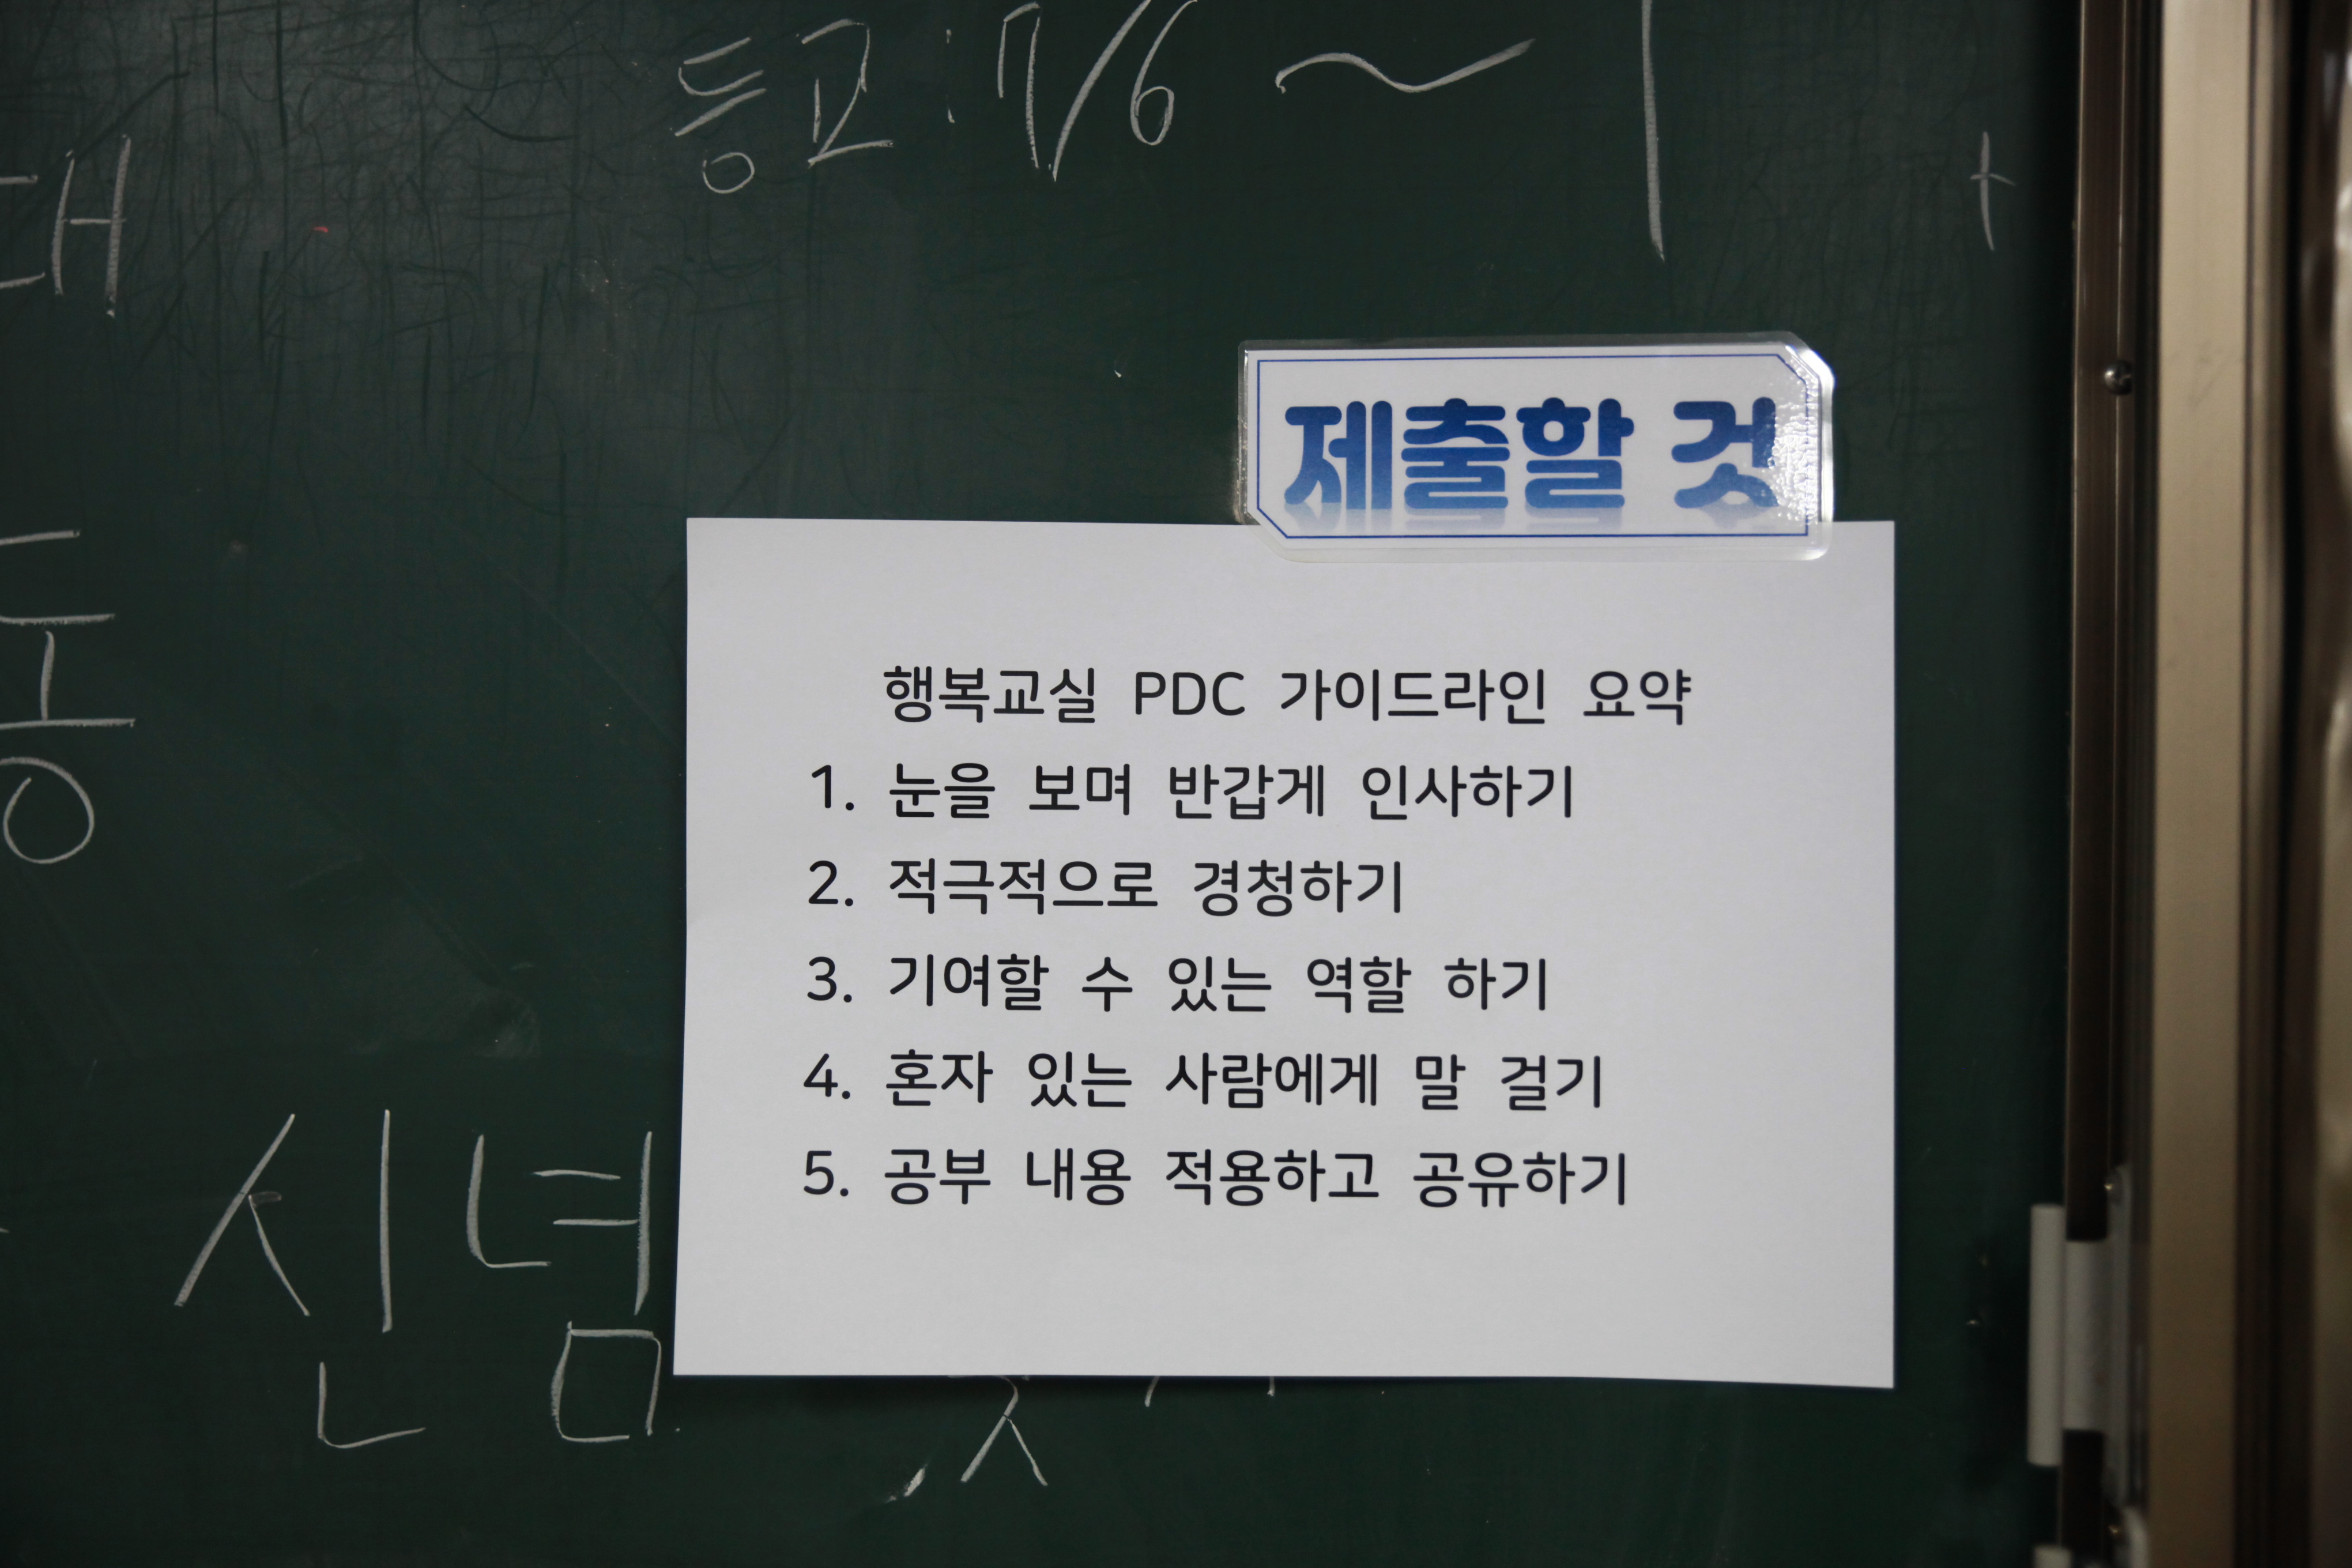 등교: 7/6 ~
제출할 것
행복교실 PDC 가이드라인 요약
1. 눈을 보며 반갑게 인사하기
2. 적극적으로 경청하기
3. 기여할 수 있는 역할 하기
4. 혼자 있는 사람에게 말 걸기
5. 공부 내용 적용하고 공유하기
신념